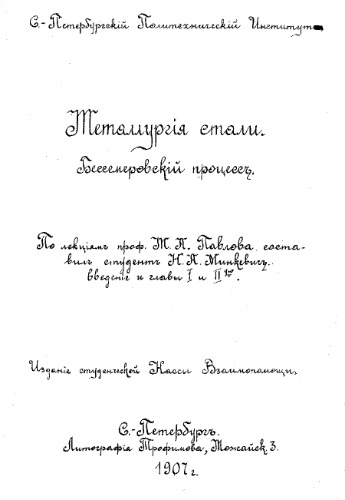 С.-Петербургскій Политехническій Институтъ
Металлургія стали.
Бессемеровскій процессъ.
По лекціямъ проф. М. А. Павлова соста-
вилъ студентъ Н. А. Минкевичъ.
введеніе и главы I и II ую.
Изданіе студенческой Кассы Взаимопомощи.
С.-Петербургъ.
Литографія Трофимова, Можайск. 3.
1907 г.